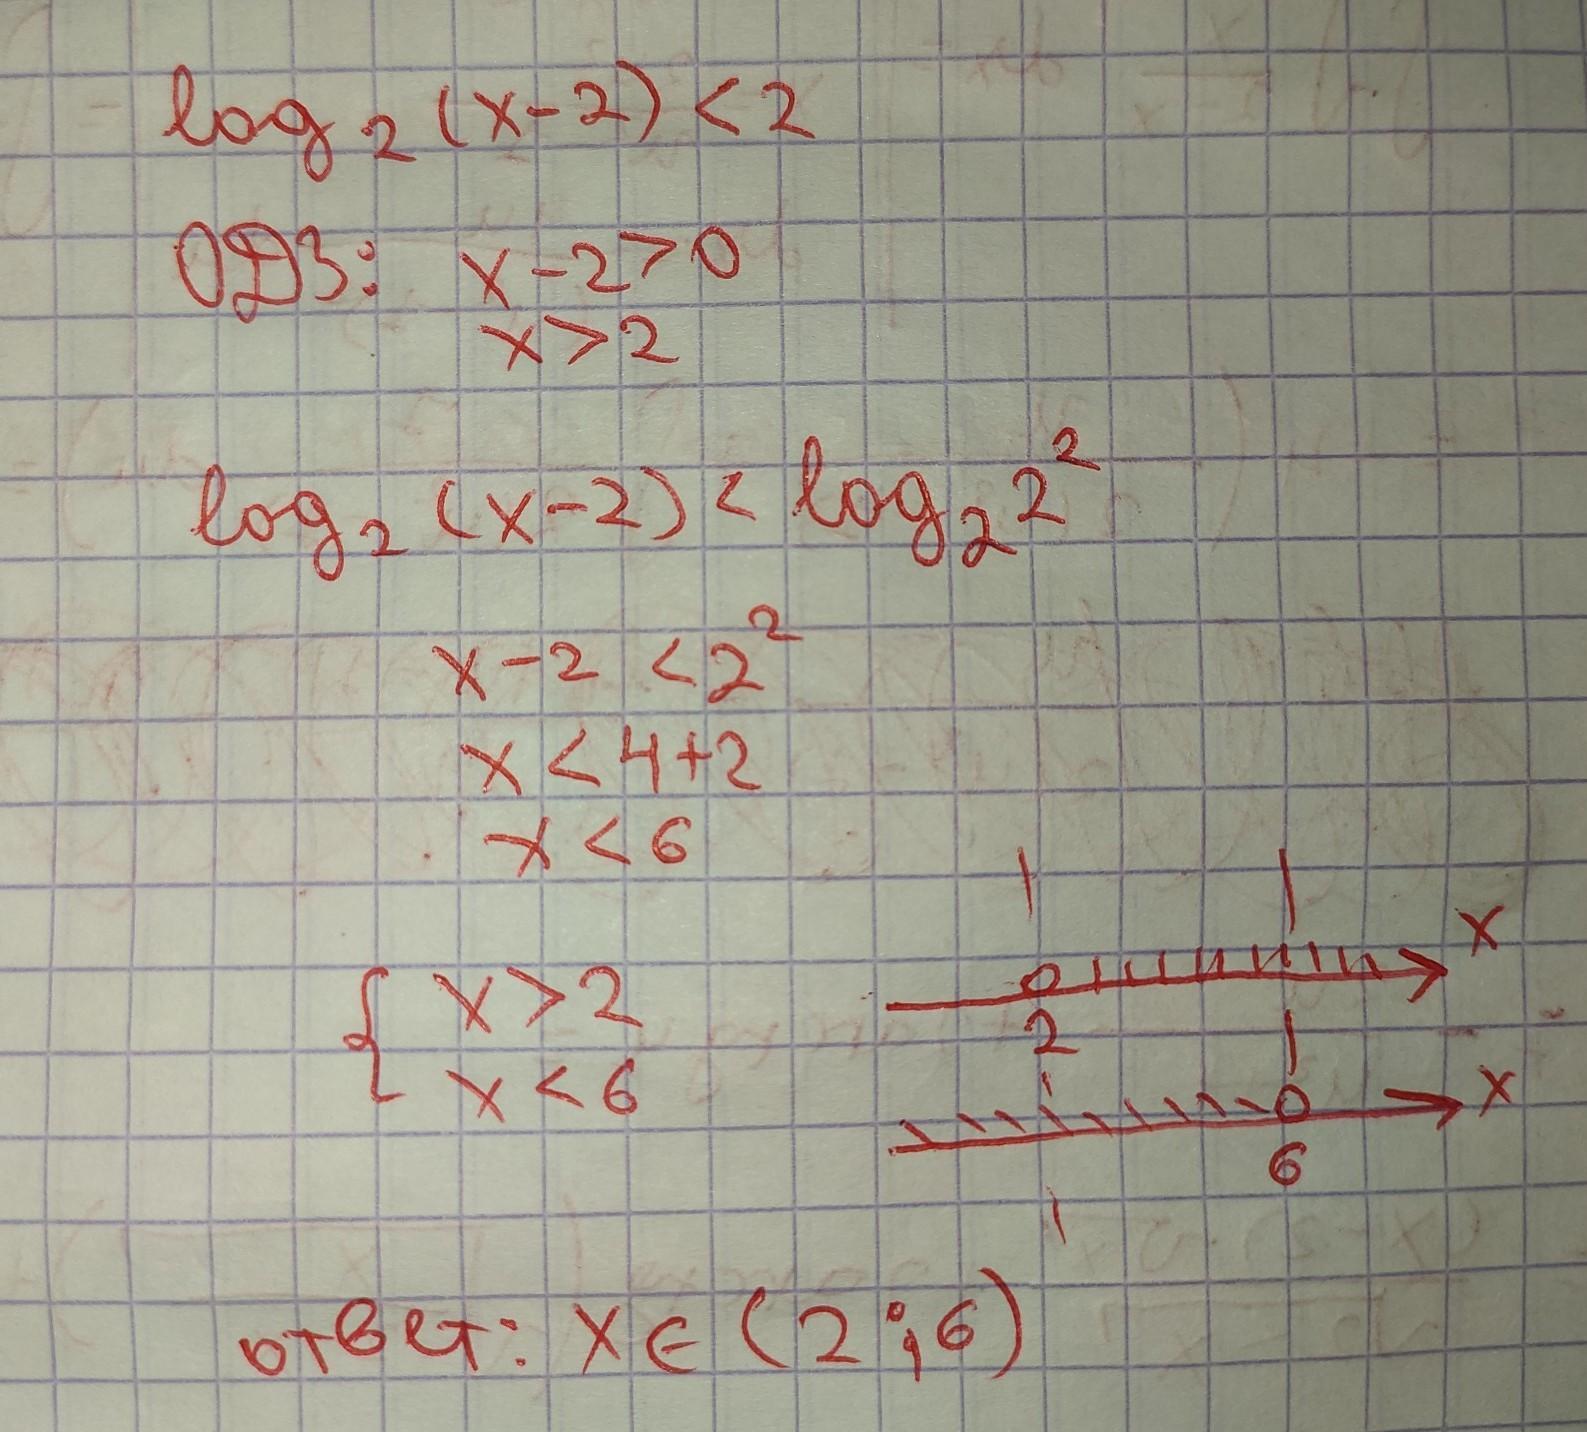 log₂(x-2)<2
ОДЗ: x-2>0
x>2
log₂(x-2)<log₂2²
x-2<2²
x<4+2
x<6
{ x>2
x<6
x
2
x
6
ответ: x∈(2;6)